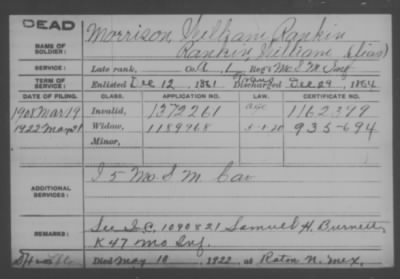 DEAD
NAME OF SOLDIER: Morrison, William Rankin
Rankin, William (alias)
SERVICE: Late rank, Co. A, Reg't Mo S M Inf
TERM OF SERVICE: Enlisted Dec 12, 1861 Discharged Dec 29, 1864
DATE OF FILING. CLASS. APPLICATION NO. LAW. CERTIFICATE NO.
1908 Mar 19 Invalid, 1372261 age 1162379
1922 May 31 Widow, 1189968 5-1-20 935-694
Minor,
ADDITIONAL SERVICES: I 5 Mo. S M Cav
REMARKS: See I.C. 1090821 Samuel H. Burnett,
K 47 Mo Inf.
Died May 10, 1922, at Raton N. Mex.